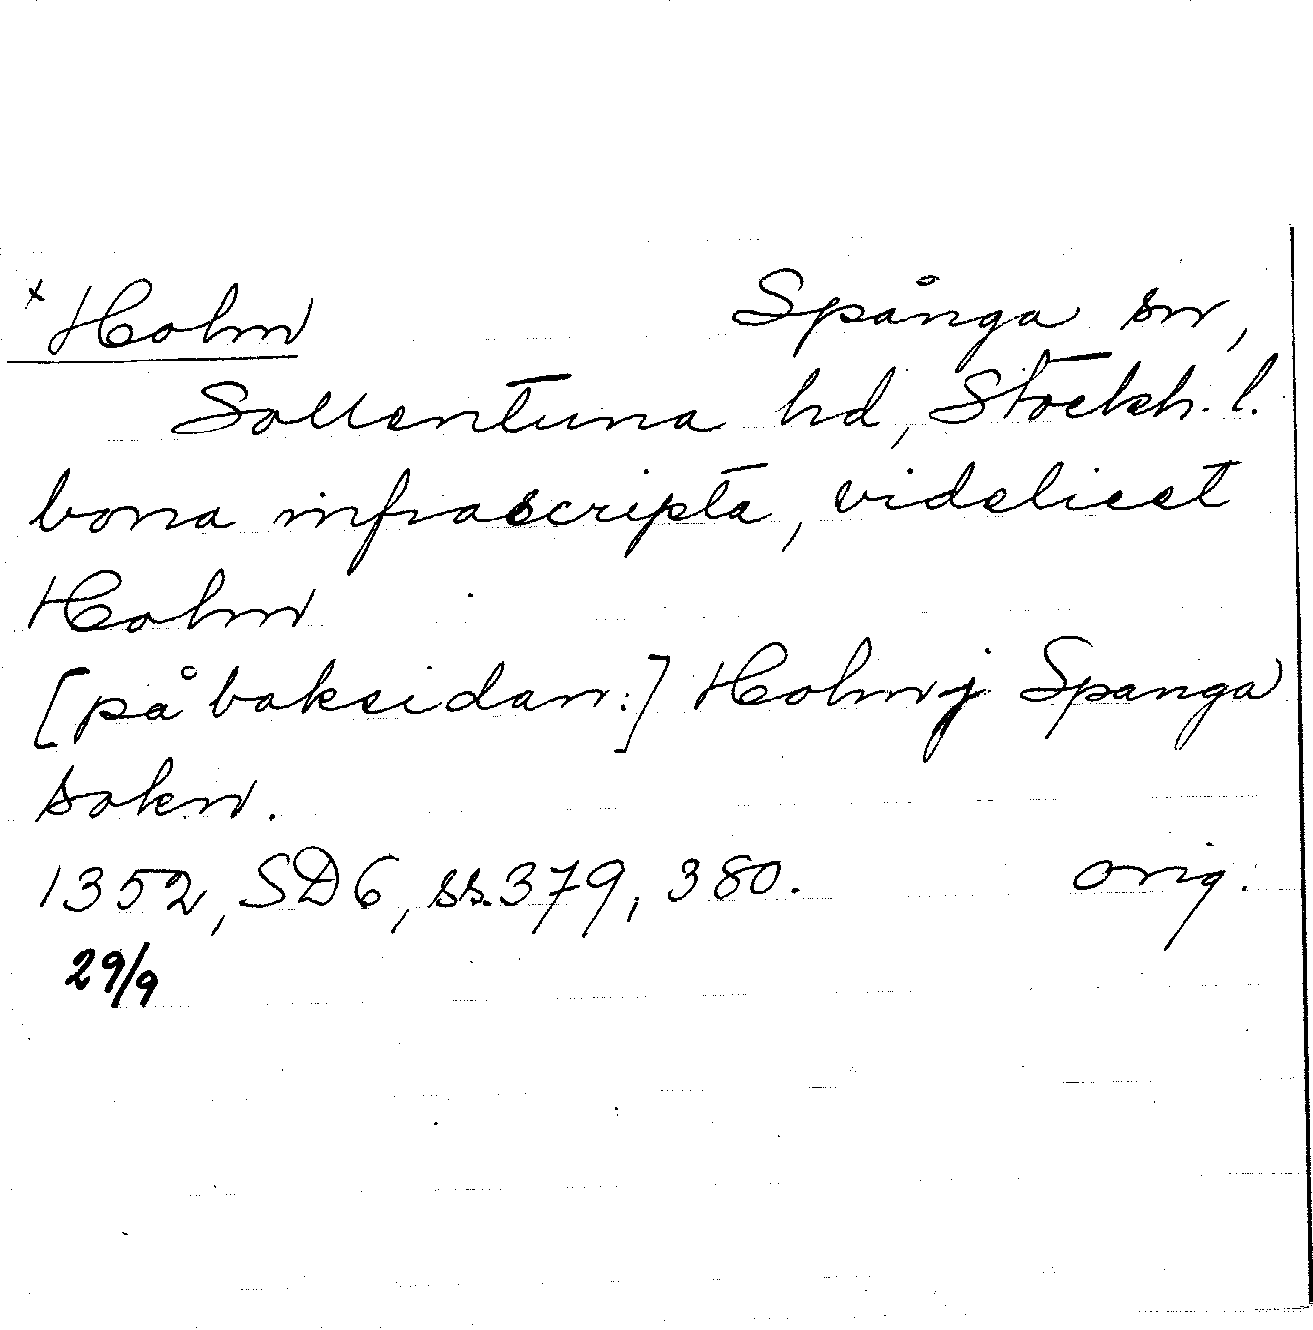 x Holm Spånga sn,
Sollentuna hd, Stockh. l.
bona infrascripta, videlicet
Holm
[på baksidan:] Holm j Spanga
sokn.
1352, SD6, ss. 379, 380. orig.
29/9